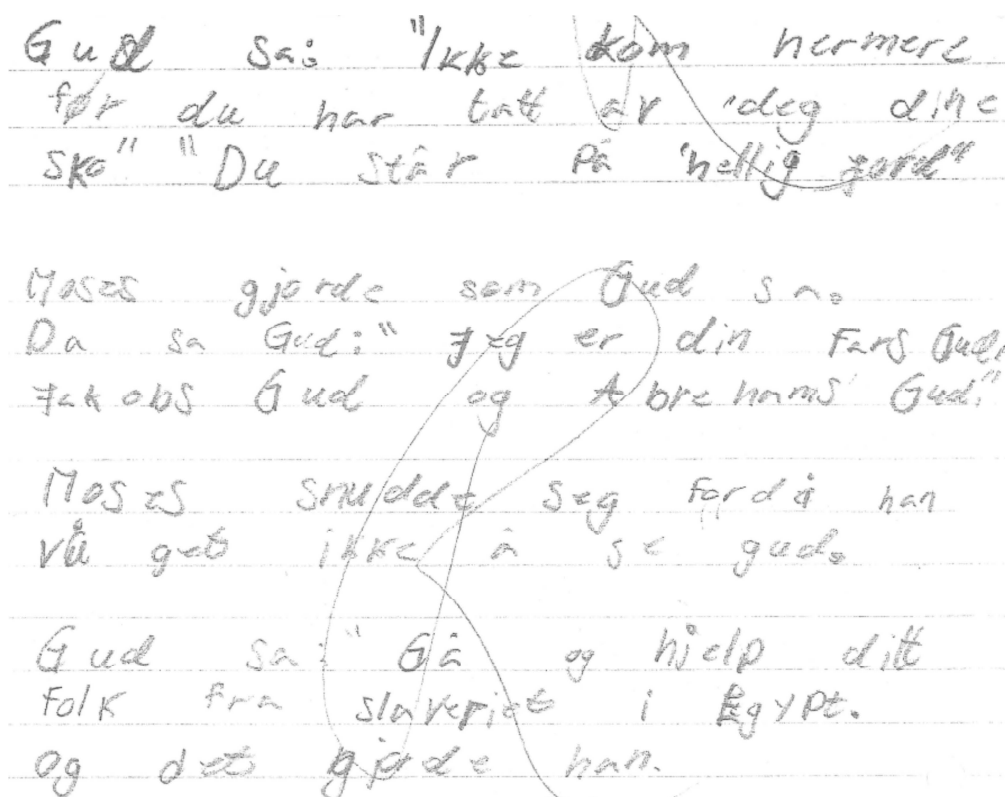 Gud sa: "Ikke kom nermere
før du har tatt av deg dine
sko" "Du står på hellig jord"
Moses gjorde som Gud sa.
Da sa Gud: "Jeg er din Fars Gud,
Jakobs Gud og Abrehams Gud."
Moses snudde seg fordå han
våget ikke å se gud.
Gud sa: "Gå og hjelp ditt
Folk fra slaveriet i Egypt.
og det gjorde han.